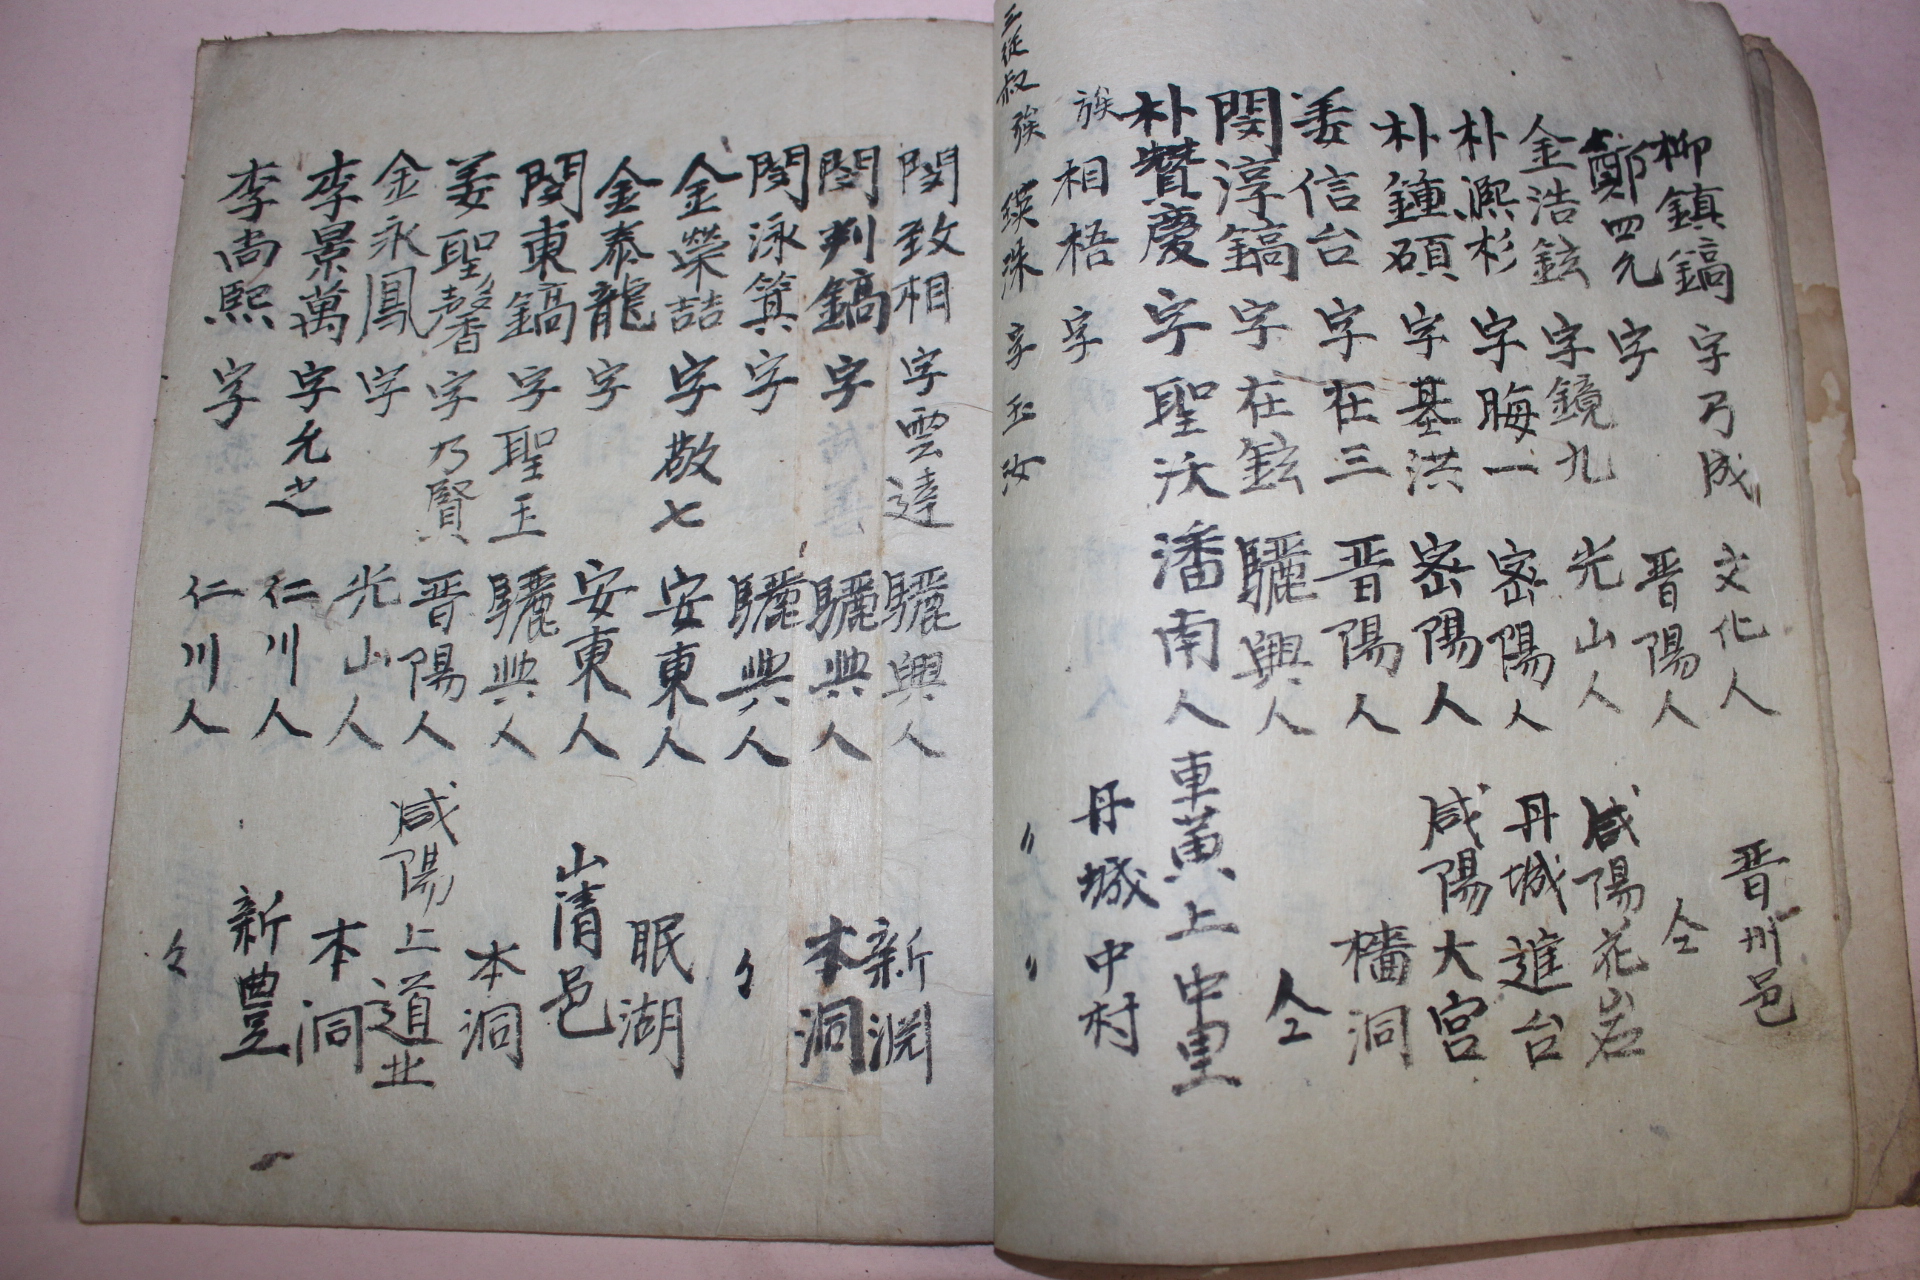 柳鎮鎬 字乃成 文化人 晋州邑
鄭四允 字 晋陽人 仝
金浩鉉 字鏡九 光山人 咸陽花岩
朴熈杉 字晦一 密陽人 丹城進台
朴鍾碩 字基洪 密陽人 咸陽大宮
姜信台 字在三 晋陽人 檣洞
閔淳鎬 字在鉉 驪興人 仝
朴贊慶 字聖沃 潘南人 車黃上中里
族 相梧 字 丹城中村
三從叔 族 珠 字玉汝 〃 〃
閔致相 字雲逵 驪興人 新渊
閔判鎬 字 驪興人 本洞
閔泳箕 字 驪興人 々
金榮喆 字敬七 安東人 眠湖
金泰龍 字 安東人 山清邑
閔東鎬 字聖玉 驪興人 本洞
姜聖馨 字乃賢 晋陽人 咸陽上道北
金永鳳 字 光山人 本洞
李景萬 字允之 仁川人 新豊
李尚熙 字 仁川人 々